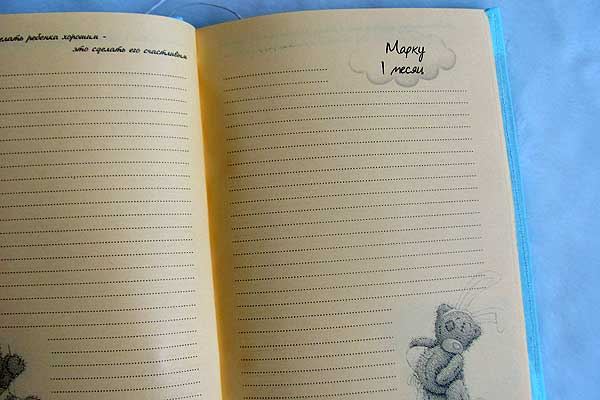 делать ребенка хорошим -
это сделать его счастливым
Марку
1 месяц